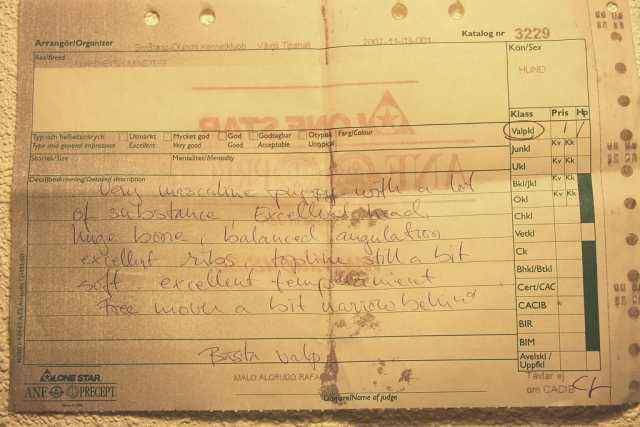 Arrangör/Organizer
Katalog nr 3229
Ras/Breed
Kön/Sex
HUND
Klass Pris Hp
Valpkl 1 /
Typ och helhetsintryck Utmärkt Mycket god God Godtagbar Otypisk Färg/Colour
Type and general impression Excellent Very good Good Acceptable Untypical
Junkl Kv Kk
Storlek/Size Mentalitet/Mentality
Ukl Kv Kk
Detaljbeskrivning/Detailed description
Bkl/Jkl Kv Kk
Ökl Kv Kk
Chkl
Vetkl
Ck
Bhkl/Btkl
Cert/CAC
CACIB
BIR
BIM
Avelskl / Uppfkl
Very masculine puppy with a lot
of substance, Excellent head,
huge bone, balanced angulation
excellent ribs, topline still a bit
soft. excellent temperament
Free mover a bit narrow behind
Bästa valp
LONE STAR
ANF PRECEPT
Domare/Name of judge
Tävlar ej
om CACIB
LONE STAR
ANF